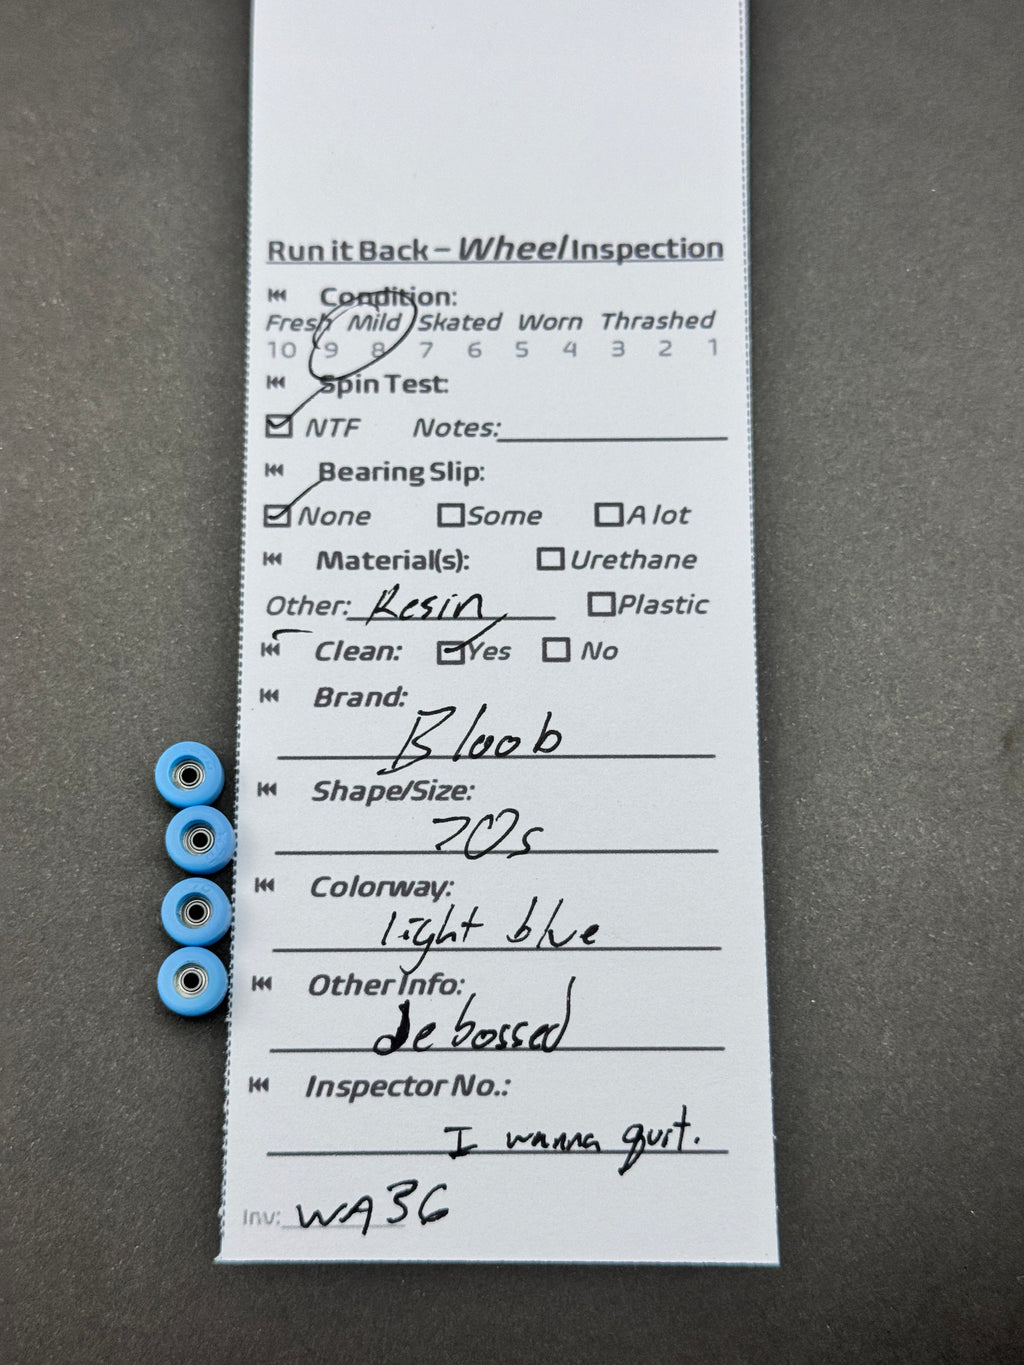 Run it Back – Wheel Inspection
Condition:
Fresh Mild Skated Worn Thrashed
10 9 8 7 6 5 4 3 2 1
Spin Test:
NTF Notes:
Bearing Slip:
None Some A lot
Material(s): Urethane
Other: Resin Plastic
Clean: Yes No
Brand:
Bloob
Shape/Size:
70s
Colorway:
light blue
Other Info:
debossed
Inspector No.:
I wanna quit.
Inv: WA36